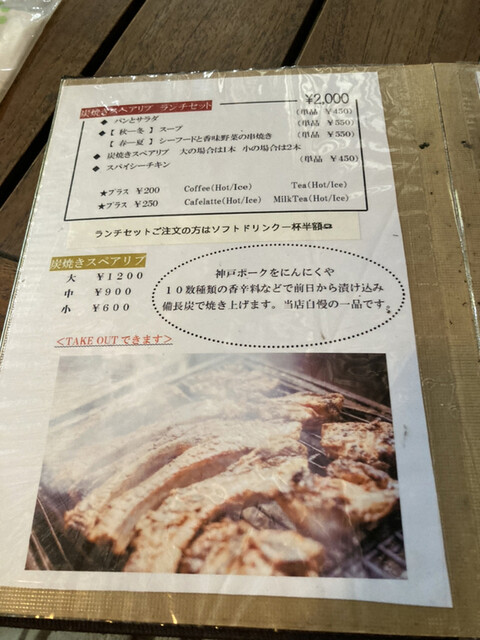 炭焼きスペアリブ ランチセット ¥2,000
◆ パンとサラダ (単品 ¥450)
◆ 【 秋ー冬 】 スープ (単品 ¥550)
【 春ー夏 】 シーフードと香味野菜の串焼き (単品 ¥550)
◆ 炭焼きスペアリブ 大の場合は1本 小の場合は2本
◆ スパイシーチキン (単品 ¥450)
★プラス ¥200 Coffee(Hot/Ice) Tea(Hot/Ice)
★プラス ¥250 Cafelatte(Hot/Ice) MilkTea(Hot/Ice)
ランチセットご注文の方はソフトドリンク一杯半額
炭焼きスペアリブ
大 ¥1200
中 ¥900
小 ¥600
神戸ポークをにんにくや
10数種類の香辛料などで前日から漬け込み
備長炭で焼き上げます。当店自慢の一品です。
<TAKE OUT できます>